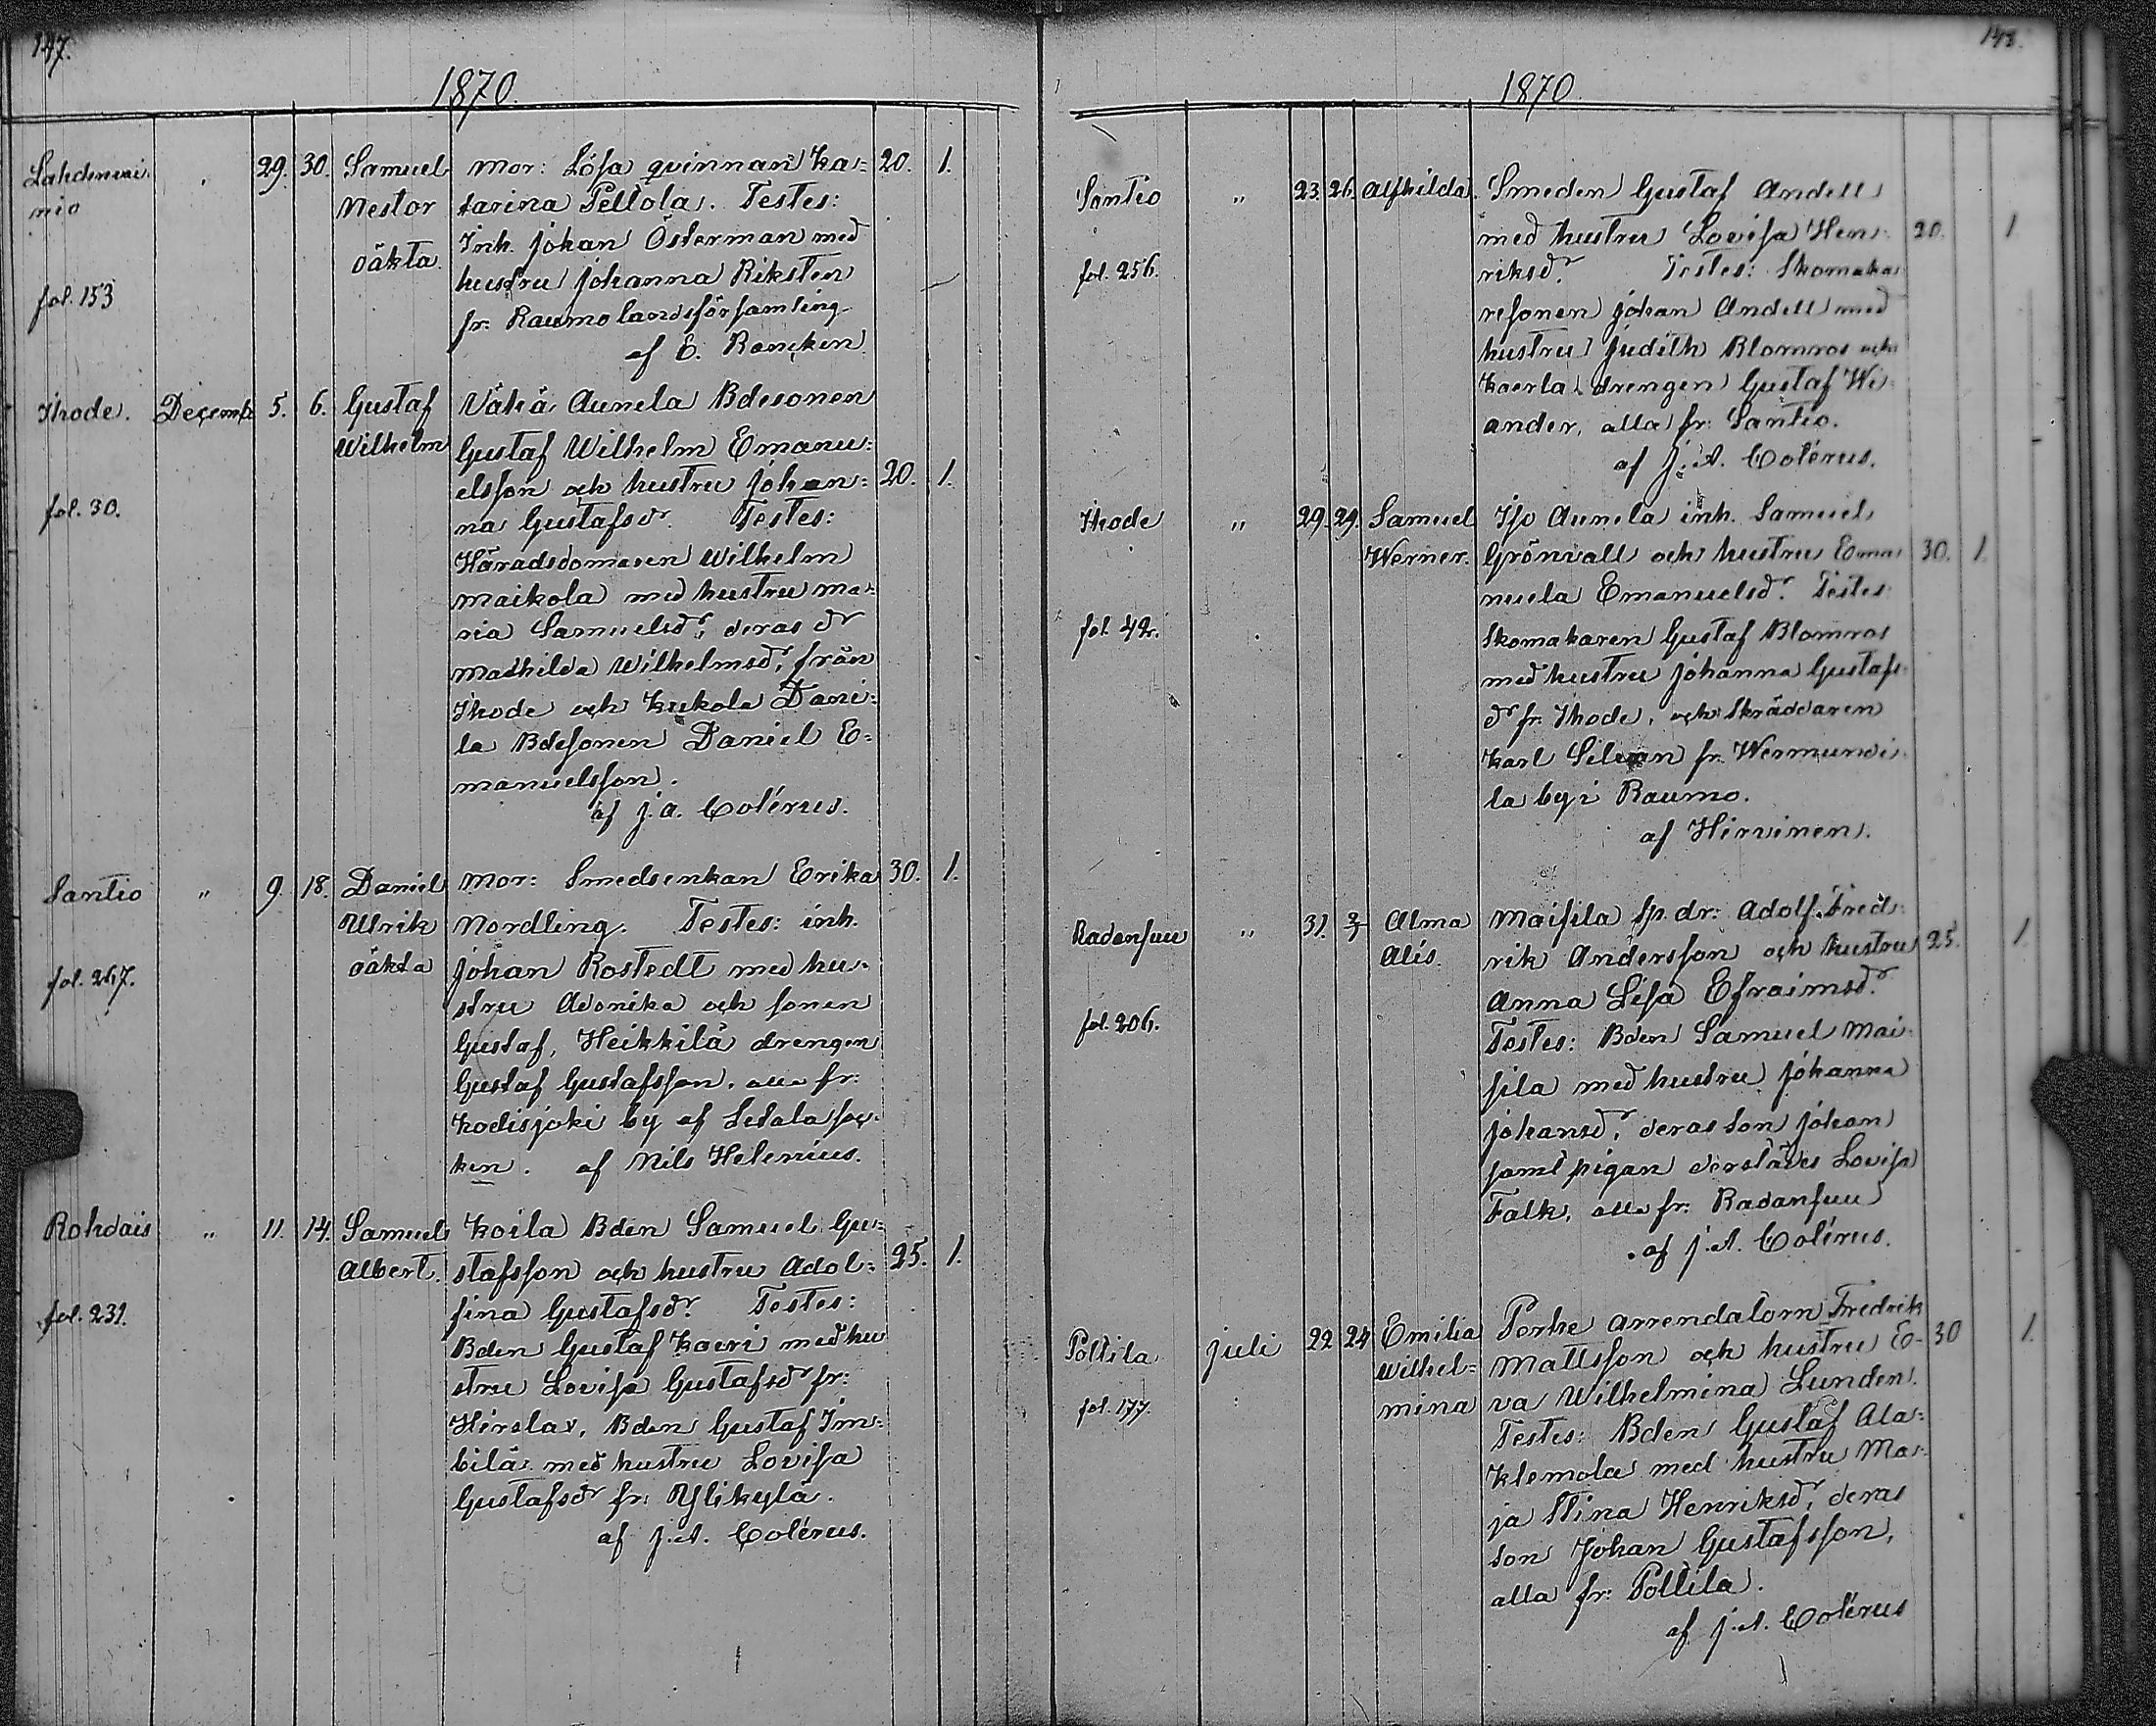 147.
1870.
Lahdenvai
nio
fol. 153
29. 30. Samuel
Nestor
oäkta.
Mor: Lösa qvinnan Ka= 20. 1.
tarina Peltola. Testes:
Inh. Johan Österman med
hustru Johanna Riksten
fr: Raumo landsförsamling
af E. Roncken
Ihode. Decemb. 5. 6. Gustaf
Wilhelm
fol. 30.
Vähä Aunela Bdesonen
Gustaf Wilhelm Emanu=
elsson och hustru Johan= 20. 1.
na Gustafsdr. Testes:
Häradsdomaren Wilhelm
Maikola med hustru Ma=
ria Samuelsdr, deras dr
Mathilda Wilhelmsdr, från
Ihode och Kukola Dani=
la Bdesonen Daniel E=
manuelsson.
af J. A. Colérus.
Santio " 9. 18. Daniel
Ulrik
oäkta
fol. 267.
Mor: Smedsenkan Erika 30. 1.
Nordling. Testes: inh.
Johan Rostedt med hu=
stru Adonika och sonen
Gustaf, Heikkilä drengen
Gustaf Gustafsson, alla fr:
Kodisjoki by af Letala soc=
ken. af Nils Helenius.
Rohdais " 11. 14. Samuel
Albert.
fol. 231.
Koila Bden Samuel Gu=
stafsson och hustru Adol= 25. 1.
fina Gustafsdr. Testes:
Bden Gustaf Kaeri med hu
stru Lovisa Gustafsdr fr:
Hirslax, Bden Gustaf Im=
bilä med hustru Lovisa
Gustafsdr fr: Ylikylä.
af J. A. Colérus.
148.
1870
Santio " 23. 26. Alfhilda.
fol. 256.
Smeden Gustaf Andell
med hustru Lovisa Hen= 20. 1
riksdr. Testes: Skomaka
resonen Johan Andell med
hustru Judith Blomros och
Kaerla drengen Gustaf Wi=
ander, alla fr: Santio.
af J. A. Colérus.
Ihode " 29. 29. Samuel
Werner.
fol. 42.
Iso Aunela inh. Samuel
Grönvall och hustru Ema 30. 1.
nuela Emanuelsdr. Testes
Skomakaren Gustaf Blomros
med hustru Johanna Gustafs
dr fr. Ihode, och Skräddaren
Karl Silvan fr. Wermundi
la by i Raumo.
af Hirvinen.
Radansuu " 31. 2/1 Alma
Alis.
fol. 206.
Maisila sp. dr: Adolf Fred=
rik Andersson och hustru 25. 1
Anna Lisa Efraimsdr.
Testes: Bden Samuel Mai
sila med hustru Johanna
Johansdr, deras son Johan
samt pigan derstädes Lovisa
Falk, alla fr: Radansuu
af J. A. Colérus.
Poltila Juli 22 24 Emilia
Wilhel=
mina
fol. 177.
Perhe arrendatorn Fredrik
Mattsson och hustru E- 30 1.
va Wilhelmina Lunden.
Testes: Bden Gustaf Ala=
Klemola med hustru Ma=
ja Stina Henriksdr, deras
son Johan Gustafsson,
alla fr: Poltila.
af J. A. Colérus